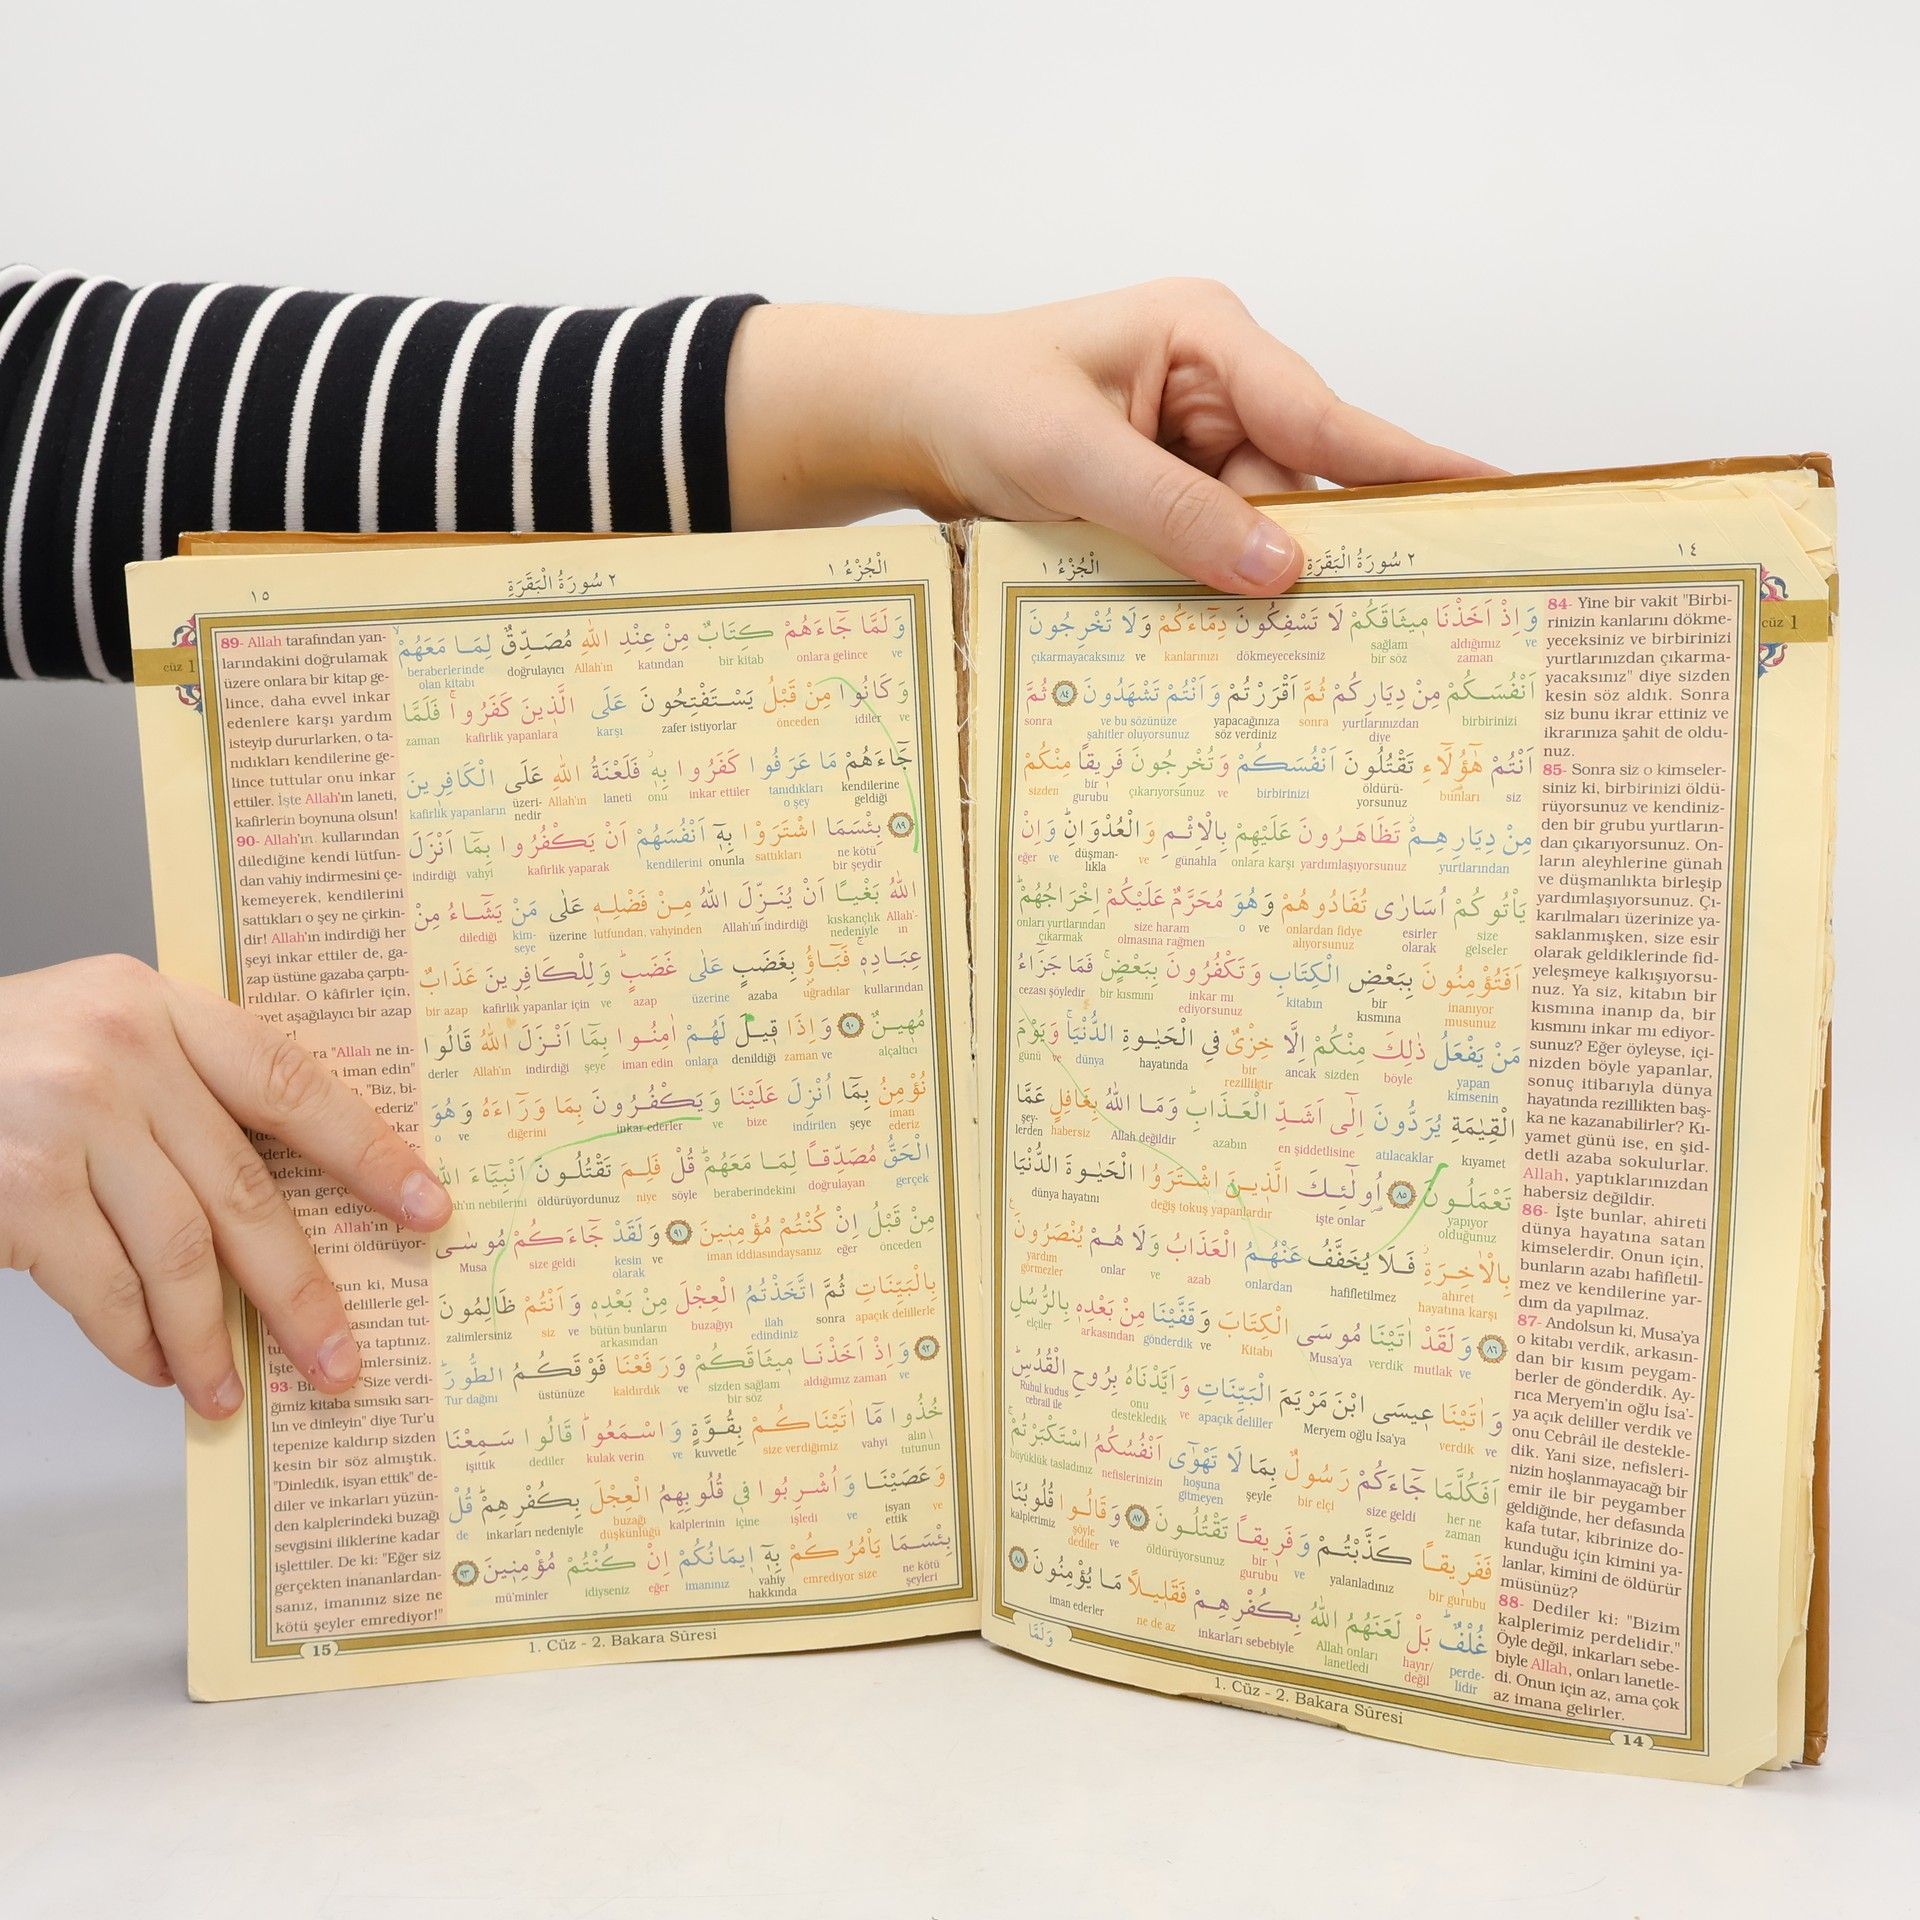 ١٤
٢ سُورَةُ الْبَقَرَةِ
الْجُزْءُ ١
وَاِذْ اَخَذْنَا م۪يثَاقَكُمْ لَا تَسْفِكُونَ دِمَٓاءَكُمْ وَلَا تُخْرِجُونَ
ve aldığımız zaman sağlam bir söz dökmeyeceksiniz kanlarınızı ve çıkarmayacaksınız
اَنْفُسَكُمْ مِنْ دِيَارِكُمْ ثُمَّ اَقْرَرْتُمْ وَاَنْتُمْ تَشْهَدُونَ ﴿٨٤﴾ ثُمَّ
birbirinizi yurtlarınızdan diye sonra yapacağınıza söz verdiniz ve bu sözünüze şahitler oluyorsunuz sonra
اَنْتُمْ هٰٓؤُ۬لَٓاءِ تَقْتُلُونَ اَنْفُسَكُمْ وَتُخْرِجُونَ فَر۪يقاً مِنْكُمْ
siz bunları öldürü-yorsunuz birbirinizi ve çıkarıyorsunuz bir gurubu sizden
مِنْ دِيَارِهِمْۘ تَظَاهَرُونَ عَلَيْهِمْ بِالْاِثْمِ وَالْعُدْوَانِۜ وَاِنْ
yurtlarından yardımlaşıyorsunuz onlara karşı günahla ve düşman-lıkla ve eğer
يَأْتُوكُمْ اُسَارٰى تُفَادُوهُمْ وَهُوَ مُحَرَّمٌ عَلَيْكُمْ اِخْرَاجُهُمْۜ
size gelseler esirler olarak onlardan fidye alıyorsunuz ve o size haram olmasına rağmen onları yurtlarından çıkarmak
اَفَتُؤْمِنُونَ بِبَعْضِ الْكِتَابِ وَتَكْفُرُونَ بِبَعْضٍۚ فَمَا جَزَٓاءُ
inanıyor musunuz bir kısmına kitabın inkar mı ediyorsunuz bir kısmını cezası şöyledir
مَنْ يَفْعَلُ ذٰلِكَ مِنْكُمْ اِلَّا خِزْيٌ فِي الْحَيٰوةِ الدُّنْيَاۚ وَيَوْمَ
yapan kimsenin böyle sizden ancak bir rezilliktir hayatında dünya ve günü
الْقِيٰمَةِ يُرَدُّونَ اِلٰٓى اَشَدِّ الْعَذَابِۜ وَمَا اللّٰهُ بِغَافِلٍ عَمَّا
kıyamet atılacaklar en şiddetlisine azabın Allah değildir habersiz şey-lerden
تَعْمَلُونَ ﴿٨٥﴾ اُو۬لٰٓئِكَ الَّذ۪ينَ اشْتَرَوُا الْحَيٰوةَ الدُّنْيَا
yapıyor olduğunuz işte onlar değiş tokuş yapanlardır dünya hayatını
بِالْاٰخِرَةِۘ فَلَا يُخَفَّفُ عَنْهُمُ الْعَذَابُ وَلَا هُمْ يُنْصَرُونَ۟
ahiret hayatına karşı hafifletilmez onlardan azab ve onlar yardım görmezler
﴿٨٦﴾ وَلَقَدْ اٰتَيْنَا مُوسَى الْكِتَابَ وَقَفَّيْنَا مِنْ بَعْدِه۪ بِالرُّسُلِ
mutlak ve verdik Musa'ya Kitabı ve gönderdik arkasından elçiler
وَاٰتَيْنَا ع۪يسَى ابْنَ مَرْيَمَ الْبَيِّنَاتِ وَاَيَّدْنَاهُ بِرُوحِ الْقُدُسِۜ
ve verdik Meryem oğlu İsa'ya apaçık deliller ve onu destekledik Ruhul kudus cebrail ile
اَفَكُلَّمَا جَٓاءَكُمْ رَسُولٌ بِمَا لَا تَهْوٰٓى اَنْفُسُكُمُ اسْتَكْبَرْتُمْۚ
her ne zaman size geldi bir elçi şeyle hoşuna gitmeyen nefislerinizin büyüklük tasladınız
فَفَر۪يقاً كَذَّبْتُمْ وَفَر۪يقاً تَقْتُلُونَ ﴿٨٧﴾ وَقَالُوا قُلُوبُنَا
bir gurubu yalanladınız ve bir gurubu öldürüyorsunuz ve şöyle dediler kalplerimiz
غُلْفٌۜ بَلْ لَعَنَهُمُ اللّٰهُ بِكُفْرِهِمْ فَقَل۪يلاً مَا يُؤْمِنُونَ ﴿٨٨﴾
perde-lidir hayır/değil Allah onları lanetledi inkarları sebebiyle ne de az iman ederler
وَلَمَّا
84- Yine bir vakit "Birbi-
rinizin kanlarını dökme-
yeceksiniz ve birbirinizi
yurtlarınızdan çıkarma-
yacaksınız" diye sizden
kesin söz aldık. Sonra
siz bunu ikrar ettiniz ve
ikrarınıza şahit de oldu-
nuz.
85- Sonra siz o kimseler-
siniz ki, birbirinizi öldü-
rüyorsunuz ve kendiniz-
den bir grubu yurtların-
dan çıkarıyorsunuz. On-
ların aleyhlerine günah
ve düşmanlıkta birleşip
yardımlaşıyorsunuz. Çı-
karılmaları üzerinize ya-
saklanmışken, size esir
olarak geldiklerinde fid-
yeleşmeye kalkışıyorsu-
nuz. Ya siz, kitabın bir
kısmına inanıp da, bir
kısmını inkar mı ediyor-
sunuz? Eğer öyleyse, içi-
nizden böyle yapanlar,
sonuç itibarıyla dünya
hayatında rezillikten baş-
ka ne kazanabilirler? Kı-
yamet günü ise, en şid-
detli azaba sokulurlar.
Allah, yaptıklarınızdan
habersiz değildir.
86- İşte bunlar, ahireti
dünya hayatına satan
kimselerdir. Onun için,
bunların azabı hafifletil-
mez ve kendilerine yar-
dım da yapılmaz.
87- Andolsun ki, Musa'ya
o kitabı verdik, arkasın-
dan bir kısım peygam-
berler de gönderdik. Ay-
rıca Meryem'in oğlu İsa'-
ya açık deliller verdik ve
onu Cebrâil ile destekle-
dik. Yani size, nefisleri-
nizin hoşlanmayacağı bir
emir ile bir peygamber
geldiğinde, her defasında
kafa tutar, kibrinize do-
kunduğu için kimini ya-
lanlar, kimini de öldürür
müsünüz?
88- Dediler ki: "Bizim
kalplerimiz perdelidir."
Öyle değil, inkarları sebe-
biyle Allah, onları lanetle-
di. Onun için az, ama çok
az imana gelirler.
cüz 1
1. Cüz - 2. Bakara Sûresi
14
الْجُزْءُ ١
٢ سُورَةُ الْبَقَرَةِ
١٥
وَلَمَّا جَٓاءَهُمْ كِتَابٌ مِنْ عِنْدِ اللّٰهِ مُصَدِّقٌ لِمَا مَعَهُمْۙ
ve onlara gelince bir kitab katından Allah'ın doğrulayıcı beraberlerinde olan kitabı
وَكَانُوا مِنْ قَبْلُ يَسْتَفْتِحُونَ عَلَى الَّذ۪ينَ كَفَرُواۚ فَلَمَّا
ve idiler önceden zafer istiyorlar karşı kafirlik yapanlara zaman
جَٓاءَهُمْ مَا عَرَفُوا كَفَرُوا بِه۪ۘ فَلَعْنَةُ اللّٰهِ عَلَى الْكَافِر۪ينَ
kendilerine geldiği tanıdıkları o şey inkar ettiler onu laneti Allah'ın üzeri-nedir kafirlik yapanların
﴿٨٩﴾ بِئْسَمَا اشْتَرَوْا بِه۪ٓ اَنْفُسَهُمْ اَنْ يَكْفُرُوا بِمَٓا اَنْزَلَ
ne kötü bir şeydir sattıkları onunla kendilerini kafirlik yaparak vahyi indirdiği
اللّٰهُ بَغْياً اَنْ يُنَزِّلَ اللّٰهُ مِنْ فَضْلِه۪ عَلٰى مَنْ يَشَٓاءُ مِنْ
Allah'-ın kıskançlık nedeniyle Allah'ın indirdiği lutfundan, vahyinden üzerine kim-seye dilediği
عِبَادِه۪ۚ فَبَٓاؤُ۫ بِغَضَبٍ عَلٰى غَضَبٍۜ وَلِلْكَافِر۪ينَ عَذَابٌ
kullarından uğradılar azaba üzerine azap ve kafirlik yapanlar için bir azap
مُه۪ينٌ ﴿٩٠﴾ وَاِذَا ق۪يلَ لَهُمْ اٰمِنُوا بِمَٓا اَنْزَلَ اللّٰهُ قَالُوا
alçaltıcı ve zaman denildiği onlara iman edin şeye indirdiği Allah'ın derler
نُؤْمِنُ بِمَٓا اُنْزِلَ عَلَيْنَا وَيَكْفُرُونَ بِمَا وَرَٓاءَهُ وَهُوَ
iman ederiz şeye indirilen bize ve inkar ederler diğerini ve o
الْحَقُّ مُصَدِّقاً لِمَا مَعَهُمْۜ قُلْ فَلِمَ تَقْتُلُونَ اَنْبِيَٓاءَ اللّٰهِ
gerçek doğrulayan beraberindekini söyle niye öldürüyordunuz nebilerini
مِنْ قَبْلُ اِنْ كُنْتُمْ مُؤْمِن۪ينَ ﴿٩١﴾ وَلَقَدْ جَٓاءَكُمْ مُوسٰى
önceden eğer iman iddiasındaysanız ve kesin olarak size geldi Musa
بِالْبَيِّنَاتِ ثُمَّ اتَّخَذْتُمُ الْعِجْلَ مِنْ بَعْدِه۪ وَاَنْتُمْ ظَالِمُونَ
apaçık delillerle sonra ilah edindiniz buzağıyı bütün bunların arkasından ve siz zalimlersiniz
﴿٩٢﴾ وَاِذْ اَخَذْنَا م۪يثَاقَكُمْ وَرَفَعْنَا فَوْقَكُمُ الطُّورَۜ
ve zaman aldığımız sizden sağlam bir söz ve kaldırdık üstünüze Tur dağını
خُذُوا مَٓا اٰتَيْنَاكُمْ بِقُوَّةٍ وَاسْمَعُواۜ قَالُوا سَمِعْنَا
alın\ tutunun vahyi size verdiğimiz kuvvetle ve kulak verin dediler işittik
وَعَصَيْنَا وَاُشْرِبُوا ف۪ي قُلُوبِهِمُ الْعِجْلَ بِكُفْرِهِمْۜ قُلْ
ve isyan ettik ve işledi içine kalplerinin buzağı düşkünlüğü inkarları nedeniyle de
بِئْسَمَا يَأْمُرُكُمْ بِه۪ٓ ا۪يمَانُكُمْ اِنْ كُنْتُمْ مُؤْمِن۪ينَ ﴿٩٣﴾
ne kötü şeyleri emrediyor size vahiy hakkında imanınız eğer idiyseniz mü'minler
cüz 1
89- Allah tarafından yan-
larındakini doğrulamak
üzere onlara bir kitap ge-
lince, daha evvel inkar
edenlere karşı yardım
isteyip dururlarken, o ta-
nıdıkları kendilerine ge-
lince tuttular onu inkar
ettiler. İşte Allah'ın laneti,
kafirlerin boynuna olsun!
90- Allah'ın kullarından
dilediğine kendi lütfun-
dan vahiy indirmesini çe-
kemeyerek, kendilerini
sattıkları o şey ne çirkin-
dir! Allah'ın indirdiği her
şeyi inkar ettiler de, ga-
zap üstüne gazaba çarptı-
rıldılar. O kâfirler için,
aşağılayıcı bir azap
"Allah ne in-
iman edin"
"Biz, bi-
ederiz"
gerçe
iman ediyo
için Allah'ın p
lerini öldürüyor-
Musa
delillerle gel-
tut-
taptınız.
İşte
93- "Size verdi-
ğimiz kitaba sımsıkı sarı-
lın ve dinleyin" diye Tur'u
tepenize kaldırıp sizden
kesin bir söz almıştık.
"Dinledik, isyan ettik" de-
diler ve inkarları yüzün-
den kalplerindeki buzağı
sevgisini iliklerine kadar
işlettiler. De ki: "Eğer siz
gerçekten inananlardan-
sanız, imanınız size ne
kötü şeyler emrediyor!"
15
1. Cüz - 2. Bakara Sûresi